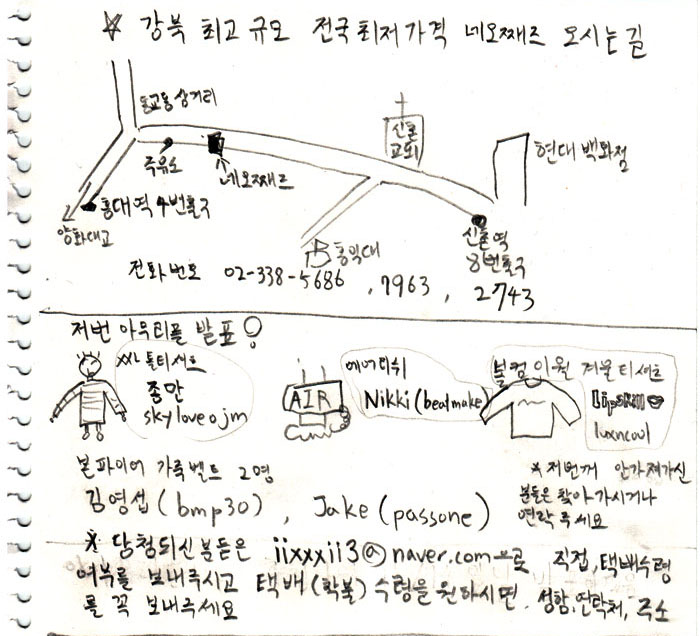 ☆ 강북 최고 규모 전국최저가격 네오째즈 오시는길
동교동삼거리
신촌
교회
현대 백화점
주유소
네오째즈
홍대역 4번출구
양화대교
신촌역
8번출구
홍익대
전화번호 02-338-5686 , 7963 , 2743
저번 아우티플 발표!
XXL 톨티셔츠
종만
skyloveojm
에어터쉬
AIR
Nikki (beatmake)
볼컴이월 겨울티셔츠
Lipskill
luxncoul
본파이어 가죽벨트 2명
김영섭 (bmp30) , Jake (passone)
* 저번꺼 안가져가신
분들은 찾아가시거나
연락주세요
* 당첨되신분들은 iixxxii3@naver.com으로 직접, 택배수령
여부를 보내주시고 택배(착불)수령을 원하시면 성함,연락처, 주소
를 꼭 보내주세요